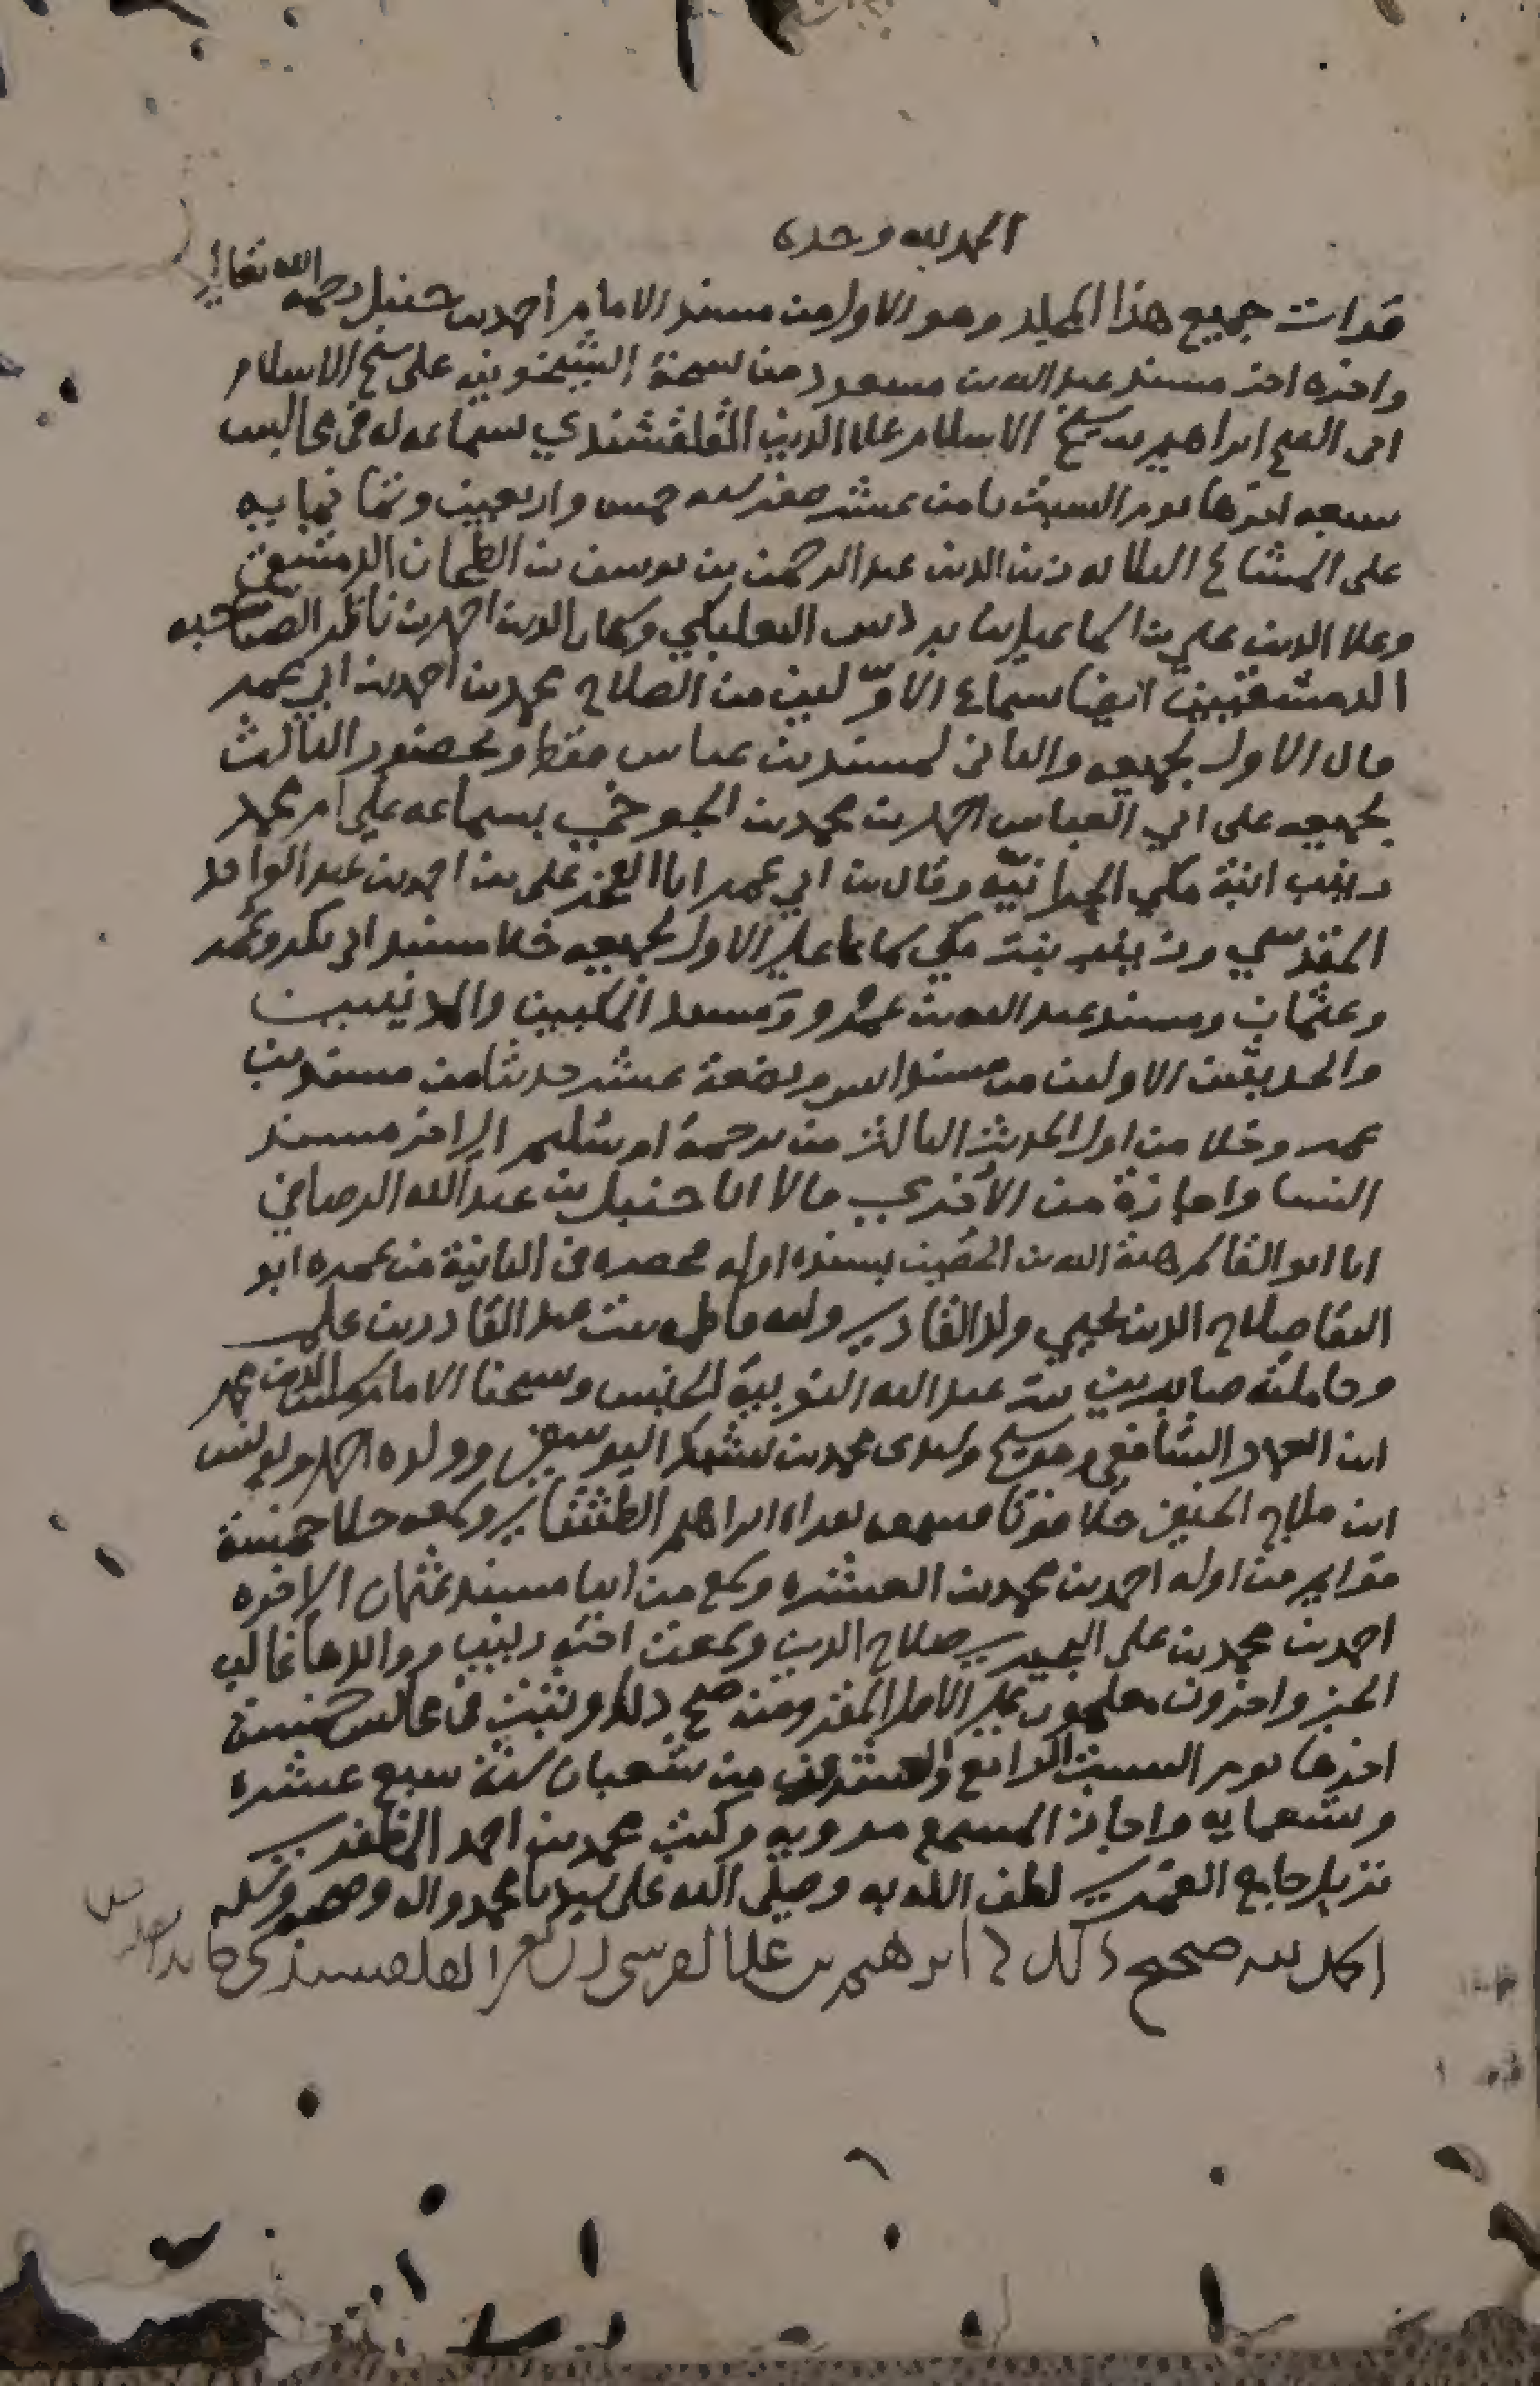 الحمد لله وحده
قرات جميع هذا المجلد وهو الاول من مسند الامام احمد بن حنبل رحمه الله تعالى
واخره اخر مسند عبد الله بن مسعود من نسخة الشيخونيه على شيخ الاسلام
ابى الفتح ابراهيم بن شيخ الاسلام علا الدين القلقشندي بسماعه له فى مجالس
سبعه اخرها يوم السبت ثامن عشر صفر سنه خمس واربعين وثمانمايه
على المشايخ الثلاثه زين الدين عبد الرحمن بن يوسف بن الطحان الدمشقي
وعلا الدين علي بن اسماعيل بن بردس البعلبكي وشهاب الدين احمد بن ناظر الصاحبه
الدمشقيين ايضا بسماع الاوّلين من الصلاح محمد بن احمد بن ابي عمر
قال الاول بجميعه والثانى لمسند بن عباس فقط وبحضور الثالث
بجميعه على ابي العباس احمد بن محمد بن الجوخي بسماعه على ام محمد
زينب ابنة مكي الحرانيّه وقال بن ابي عمر انا الفخر علي بن احمد بن عبد الواحد
المقدسي وزينب بنت مكي سماعا على الاول بجميعه خلا مسند ابى بكر وعمر
وعثمان ومسند عبد الله بن عمرو ومسند المكيين والمدنيين
والحديثين الاولين من مسند انس وبضعة عشر حديثا من مسند بن
عمر وخلا من اول الحديث الثالث من ترجمة ام سليم الى اخر مسند
النسا واجازة من الأخرى قالا انا حنبل بن عبد الله الرصافي
انا ابو القاسم هبة الله بن الحصين بسنده اوله فحضره فى الثانية من عمره ابو
البقا صلاح الدين يحيي ولد القارى وامه فاطمه بنت عبد القادر بن علي
وحاملته صابرين بنت عبد الله النوبية الجنس وشيخنا الامام كمال الدين محمد
ابن العماد الشافعي وسمع ولدى محمد بن يشبك اليوسفي وولده احمد ويونس
ابن ملاج الحنفي خلا فوتا فسمعه بقراه ابراهيم وسمعه خلا خمسة
من اوله احمد بن محمد بن وسمع من اثنا مسند عثمان الى اخره
احمد بن محمد بن على صلاح الدين وسمعت اخته زينب ووالدها غالب
واخرون معلمون على الاصل المقروء منه صح ذلك وثبت فى مجالس خمسة
اخرها يوم السبت الرابع والعشرين من شعبان سنة سبع عشره
وتسعمايه واجاز المسمع مرويه وكتب محمد بن احمد المظفري
نزيل جامع الغمري لطف الله به وصلى الله على سيدنا محمد واله وصحبه وسلم
الحمد لله صحيح ذلك ابراهيم بن علي القرشي القلقشندي